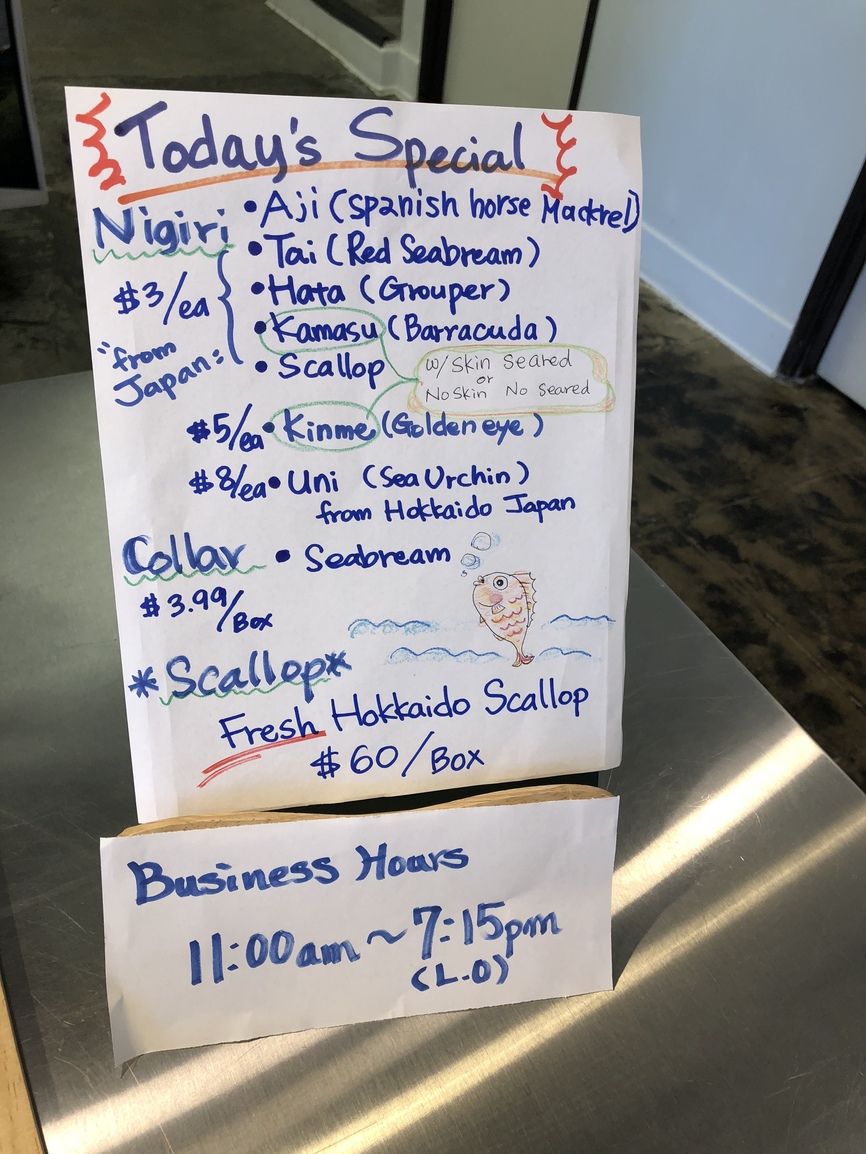 Today's Special
Nigiri • Aji (spanish horse Mackrel)
• Tai (Red Seabream)
$3/ea • Hata (Grouper)
• Kamasu (Barracuda)
"from Japan:
• Scallop
w/Skin Seared
or
No Skin No Seared
$5/ea • Kinme (Golden eye)
$8/ea • Uni (Sea Urchin)
from Hokkaido Japan
Collar • Seabream
$3.99/Box
*Scallop*
Fresh Hokkaido Scallop
$60/Box
Business Hours
11:00am ~ 7:15pm
(L.O)